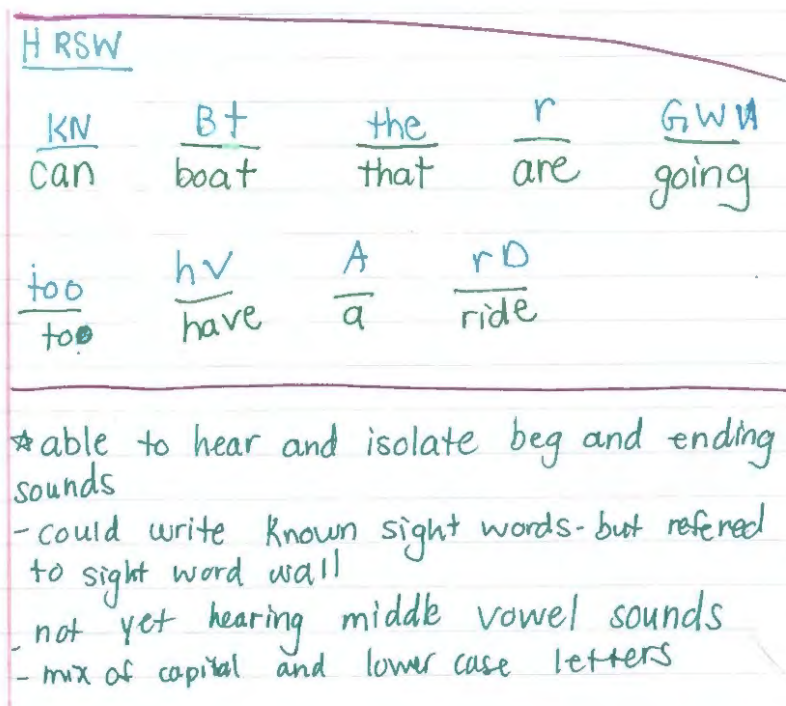 H RSW
KN Bt the r GWN
can boat that are going
too hv A rD
to have a ride
☆able to hear and isolate beg and ending
sounds
-could write known sight words-but refered
to sight word wall
-not yet hearing middle vowel sounds
-mix of capital and lower case letters